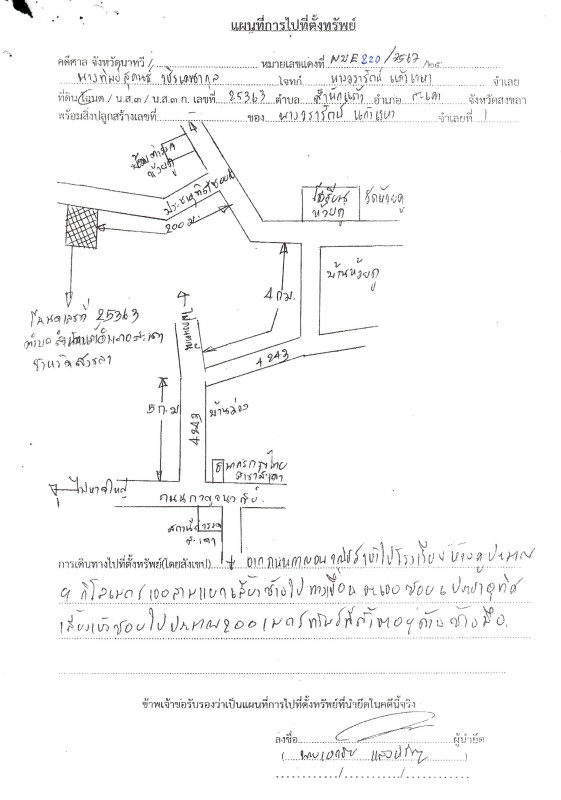 แผนที่การไปที่ตั้งทรัพย์
คดีศาล จังหวัดนาทวี หมายเลขแดงที่ ผบE 220 / 2567
โจทก์ แก้ว จำเลย
ที่ดิน/โฉนด / น.ส.๓ / น.ส.๓ ก. เลขที่ 25363 ตำบล สำนักแต้ว อำเภอ สะเดา จังหวัดสงขลา
พร้อมสิ่งปลูกสร้างเลขที่ ของ จำเลยที่ 1
ประชาอุทิศ ซอย
200 ม.
โรงเรียน
ห้วยคู
วัดห้วยคู
บ้านห้วยคู
4 กม.
โฉนดเลขที่ 25363
ตำบลสำนักแต้วอำเภอสะเดา
จังหวัดสงขลา
4243
5 ก.ม
4243
บ้านล่อง
ธนาคารกรุงไทย
สาขาสะเดา
ไปหาดใหญ่
ถนนกาญจนวนิชย์
สถานีตำรวจ
สะเดา
การเดินทางไปที่ตั้งทรัพย์(โดยสังเขป) จากถนนกาญจนวนิชย์เข้าไปโรงเรียนห้วยคูประมาณ
9 กิโลเมตร เจอสามแยกเลี้ยวซ้ายไป เจอซอย ประชาอุทิศ
เลี้ยวเข้าซอยไปประมาณ 200 เมตรทรัพย์ที่ตั้งอยู่ด้านซ้ายมือ.
ข้าพเจ้าขอรับรองว่าเป็นแผนที่การไปที่ตั้งทรัพย์ที่นำยึดในคดีนี้จริง
ลงชื่อ ผู้นำยึด